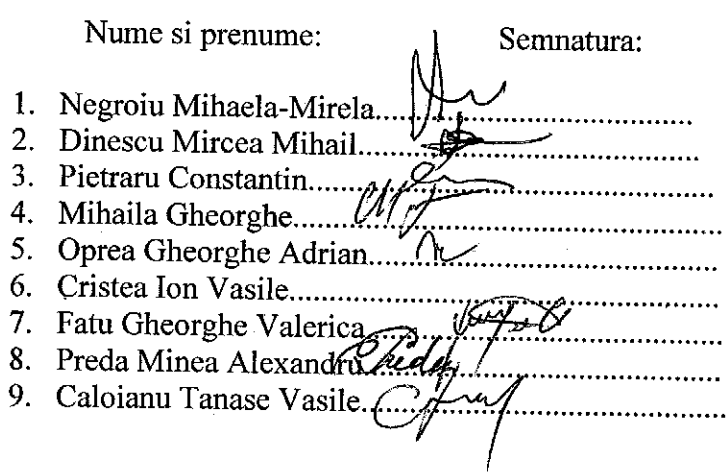 Nume si prenume: Semnatura:
1. Negroiu Mihaela-Mirela
2. Dinescu Mircea Mihail
3. Pietraru Constantin
4. Mihaila Gheorghe
5. Oprea Gheorghe Adrian
6. Cristea Ion Vasile
7. Fatu Gheorghe Valerica
8. Preda Minea Alexandru
9. Caloianu Tanase Vasile